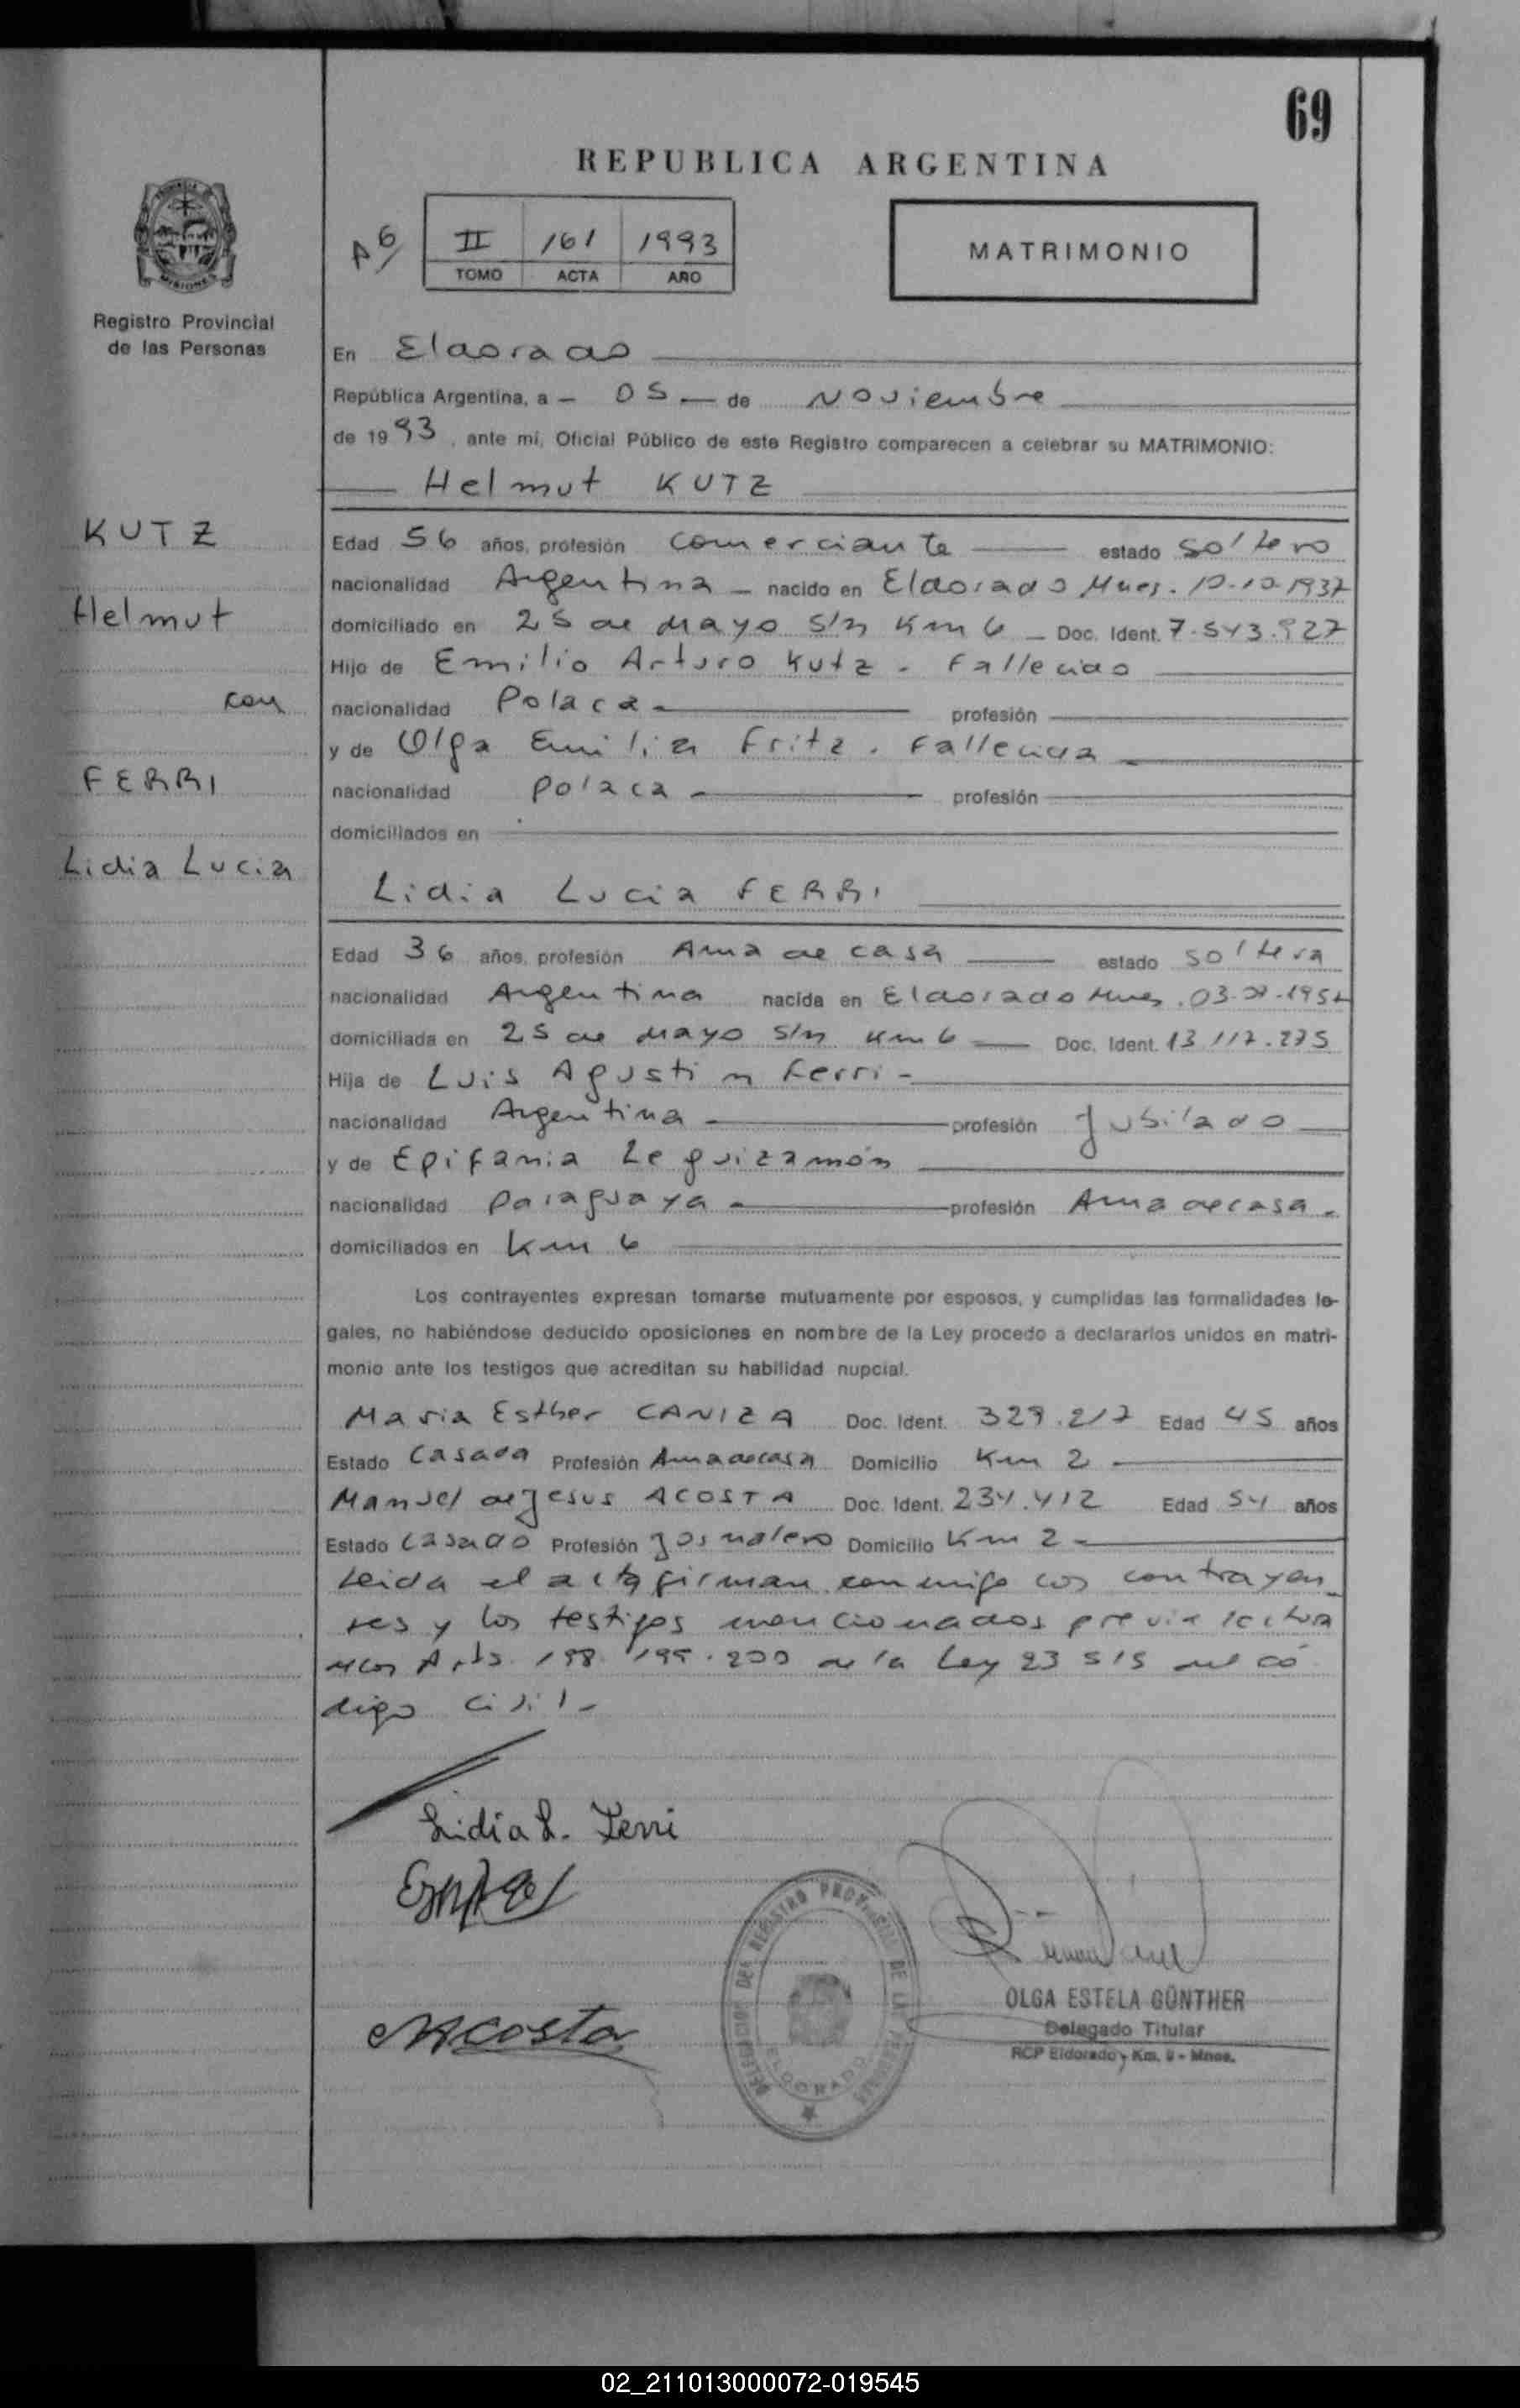 69
REPUBLICA ARGENTINA
A 6
II 161 1993
TOMO ACTA AÑO
MATRIMONIO
MISIONES
Registro Provincial
de las Personas
En Eldorado
República Argentina, a 05 de Noviembre
de 1993, ante mí, Oficial Público de este Registro comparecen a celebrar su MATRIMONIO:
Helmut KUTZ
KUTZ
Helmut
con
FERRI
Lidia Lucia
Edad 56 años, profesión Comerciante estado soltero
nacionalidad Argentina nacido en Eldorado Mnes. 10-10-1937
domiciliado en 25 de Mayo S/n Km 6 Doc. Ident. 7.543.927
Hijo de Emilio Arturo Kutz - Fallecido
nacionalidad Polaca profesión
y de Olga Emilia Fritz. Fallecida
nacionalidad polaca profesión
domiciliados en
Lidia Lucia FERRI
Edad 36 años, profesión Ama de casa estado soltera
nacionalidad Argentina nacida en Eldorado Mnes.
domiciliada en 25 de Mayo S/n Km 6 Doc. Ident. 13.117.275
Hija de Luis Agustin Ferri -
nacionalidad Argentina profesión Jubilado
y de Epifania Leguizamón
nacionalidad paraguaya profesión Ama de casa.
domiciliados en Km 6
Los contrayentes expresan tomarse mutuamente por esposos, y cumplidas las formalidades le-
gales, no habiéndose deducido oposiciones en nombre de la Ley procedo a declararlos unidos en matri-
monio ante los testigos que acreditan su habilidad nupcial.
Maria Esther CANIZA Doc. Ident. 329.217 Edad 45 años
Estado Casada Profesión Ama de casa Domicilio Km 2
Manuel de Jesus ACOSTA Doc. Ident. 234.412 Edad 54 años
Estado Casado Profesión Jornalero Domicilio Km 2
Leida el acta firman conmigo los contrayen
tes y los testigos mencionados previa lectura
de los Arts. 198. 199. 200 de la Ley 23 515 del có
digo civil -
Lidia L. Ferri
MAcosta
DELEGACION DEL REGISTRO PROVINCIAL DE LAS PERSONAS
ELDORADO
OLGA ESTELA GÜNTHER
Delegado Titular
RCP Eldorado - Km. 9 - Mnes.
02_211013000072-019545